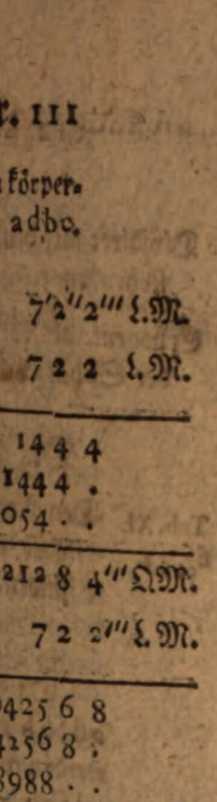 r. III
körper=
adbo.
7′2″2‴ L.M.
7 2 2 L.M.
1444
1444 .
054 . .
21284‴ Q.M.
7 2 2‴ L.M.
42568
42568 .
8988 . .